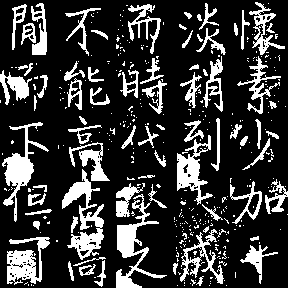 懷素少加平
淡稍到天成
而時代壓之
不能高古高
閒而下但可